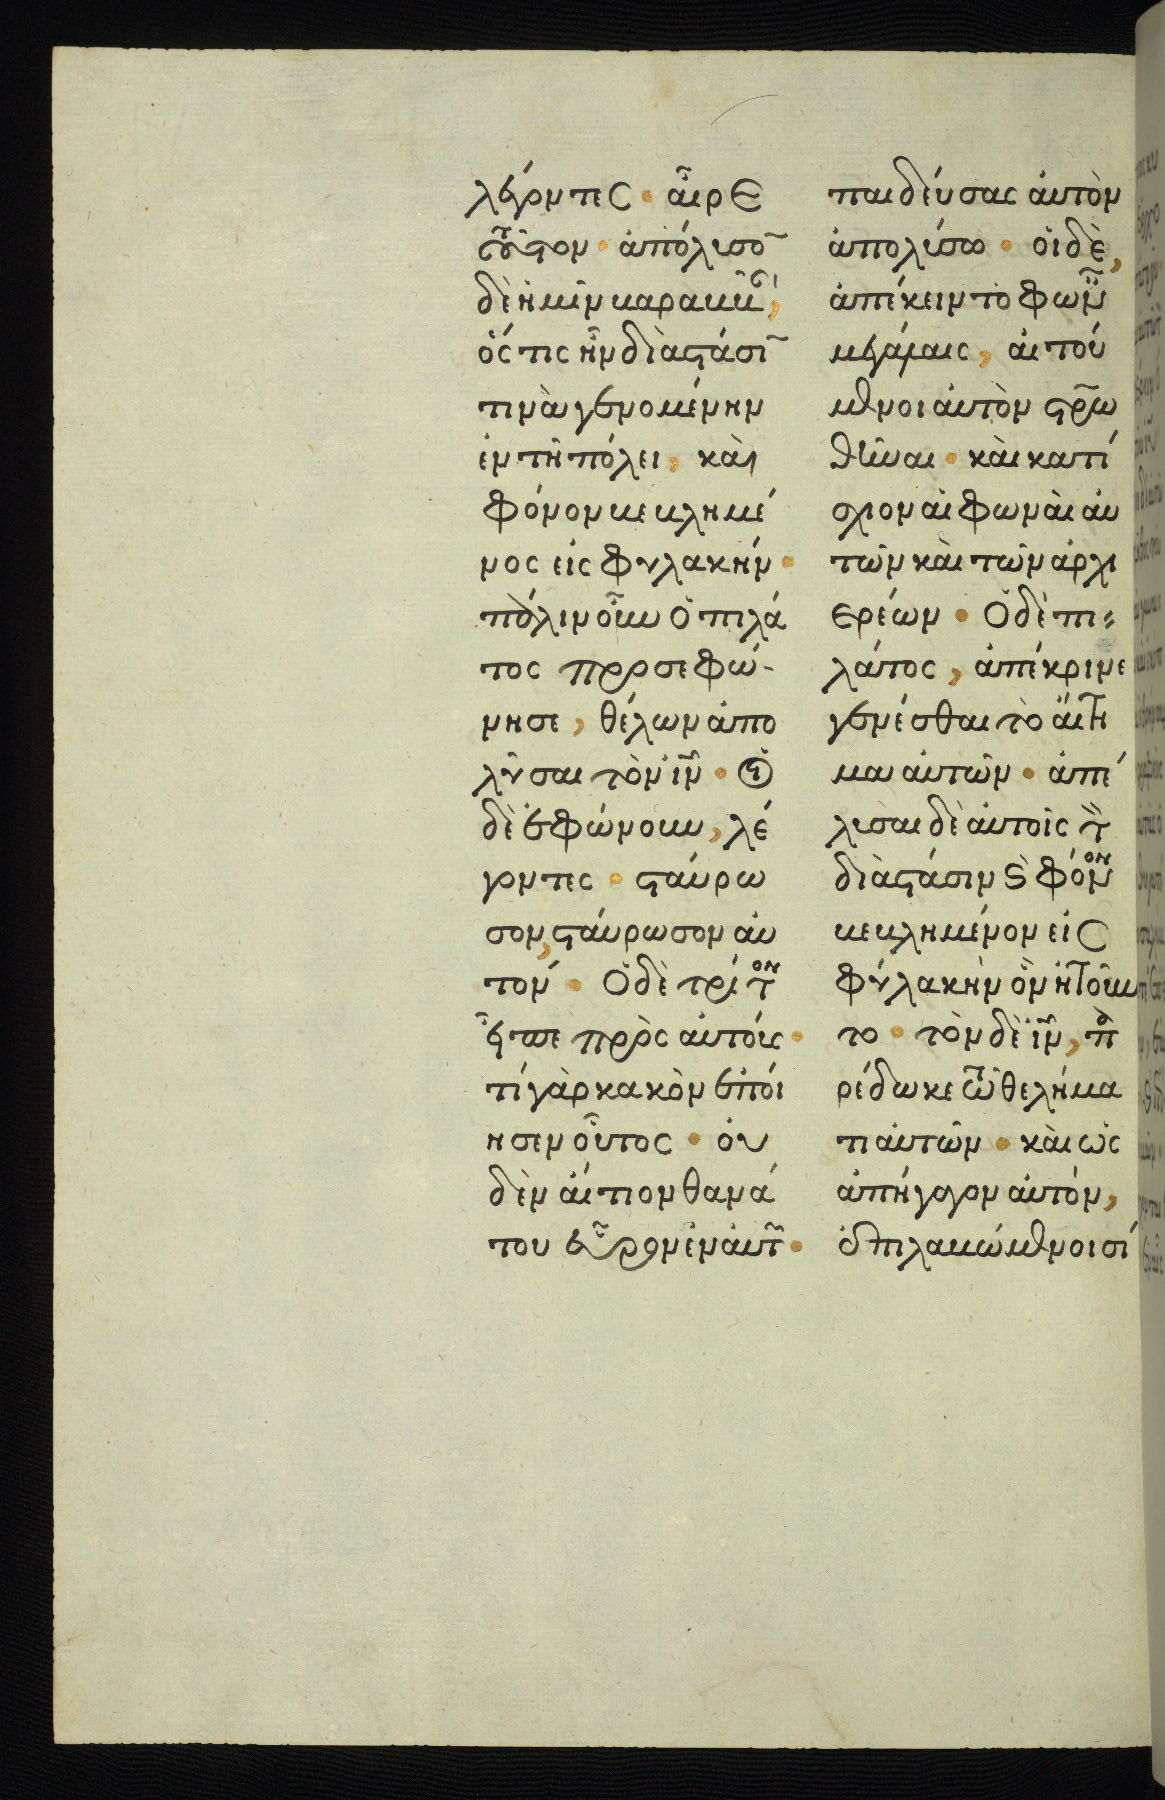 λέγοντες · αἶρε
τοῦτον · ἀπόλυσον
δὲ ἡμῖν βαραββᾶν,
ὅς τις ἦν διὰ στάσιν
τινὰ γενομένην
ἐν τῇ πόλει, καὶ
φόνον βεβλημέ
νος εἰς φυλακήν ·
πάλιν οὖν ὁ πιλά
τος προσεφώ-
νησε, θέλων ἀπο
λῦσαι τὸν ἰν · οἱ
δὲ ἐφώνουν, λέ
γοντες · σταύρω
σον, σταύρωσον αὐ
τόν · Ὁ δὲ τρίτον
εἶπε πρὸς αὐτούς ·
τί γὰρ κακὸν ἐποί
ησεν οὗτος · οὐ
δὲν αἴτιον θανά
του εὗρον ἐν αὐτῷ ·
παιδεύσας αὐτὸν
ἀπολύσω · οἱ δὲ,
ἐπέκειντο φωναῖς
μεγάλαις, αἰτού
μενοι αὐτὸν σταυρω
θῆναι · καὶ κατί
σχυον αἱ φωναὶ αὐ
τῶν καὶ τῶν ἀρχι
ερέων · Ὁ δὲ πι=
λάτος, ἐπέκρινε
γενέσθαι τὸ αἴτη
μα αὐτῶν · ἀπέ
λυσε δὲ αὐτοῖς τὸν
διὰ στάσιν καὶ φόνον
βεβλημένον εἰς
φυλακὴν ὃν ᾐτοῦν
το · τὸν δὲ ἰν, πα
ρέδωκε τῷ θελήμα
τι αὐτῶν · καὶ ὡς
ἀπήγαγον αὐτόν,
ἐπιλαβόμενοι σί